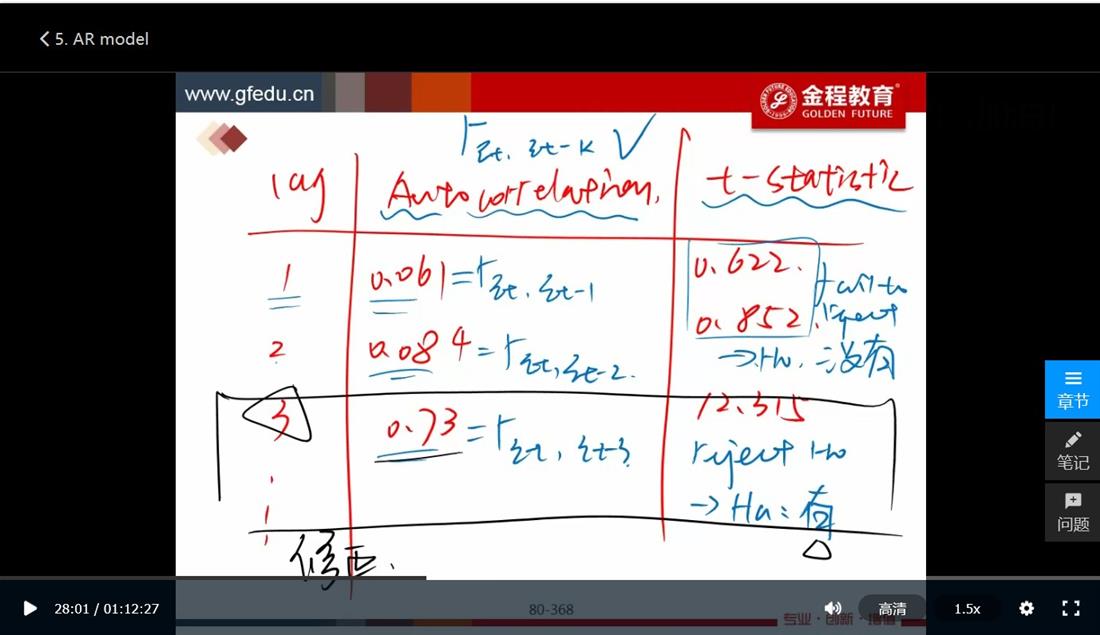 5. AR model
www.gfedu.cn
金程教育
GOLDEN FUTURE
r εt, εt-k √
lag Autocorrelation. t-statistic
1 0.061 = r εt, εt-1 0.622.
fail to
2 0.084 = r εt, εt-2. 0.852.
reject
→ H0: 没有
3 0.73 = r εt, εt-3 12.315
reject H0
→ Ha: 有
修正.
章节
笔记
问题
28:01 / 01:12:27
80-368
高清
1.5x
专业·创新·增值